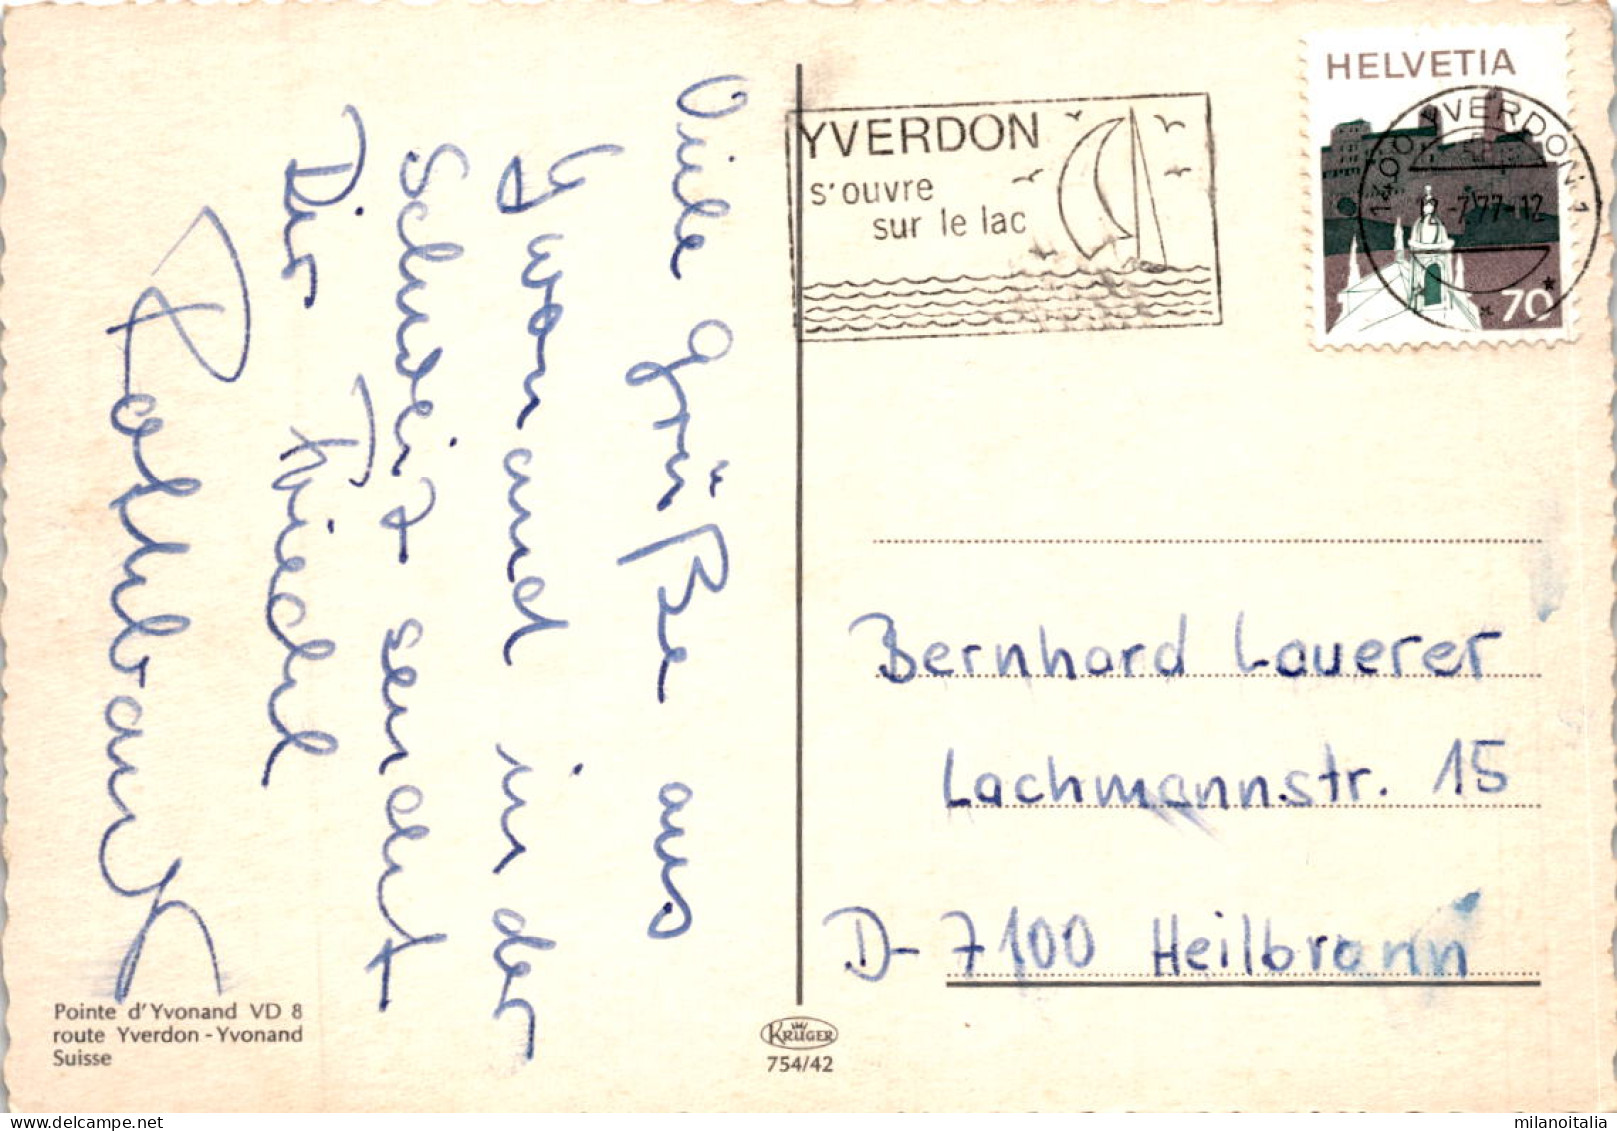 Viele Grüße aus
Yvonand in der
Schweiz sendet
Dir
Pointe d'Yvonand VD 8
route Yverdon - Yvonand
Suisse
KRÜGER
754/42
YVERDON
s'ouvre
sur le lac
HELVETIA
70
1400 YVERDON 1
12.-7.77-12
Bernhard Lauerer
Lachmannstr. 15
D-7100 Heilbronn
milanoitalia